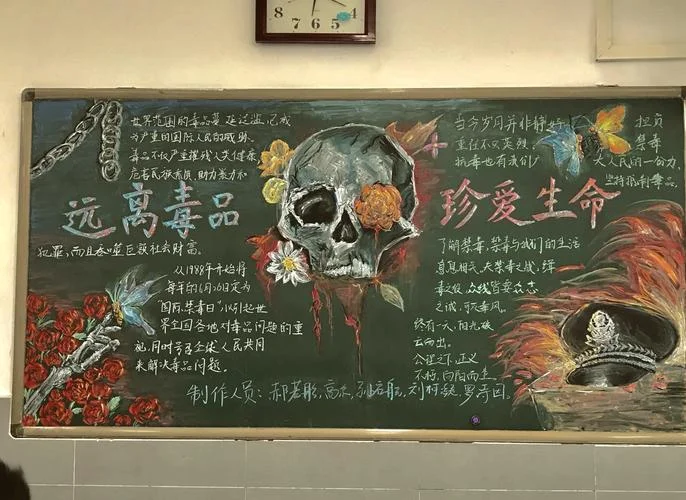 8 7 6 5 4
世界范围的毒品蔓延泛滥,已成
为严重的国际人民的威胁。
毒品不仅严重摧残人类健康
危害民族素质,助力暴力和
远离毒品
犯罪,而且吞噬巨额社会财富。
从1988年开始将
每年的6月26日定为
"国际禁毒日"以引起世
界全国各地对毒品问题的重
视,同时号召全球人民共同
来解决毒品问题。
当今岁月并非静好
重任不只英烈
抗毒也有我们
担负
禁毒
大人民的一份力,
坚持抵制毒品。
珍爱生命
了解禁毒,禁毒与我们的生活
息息相关,禁毒之战,
毒之役,众线皆要众志
之诚,可灭毒风。
终有一天,阳光破
云而出。
公理之下,正义
不朽,向阳而生。
制作人员:郝若彤,高,孙,刘柯,罗